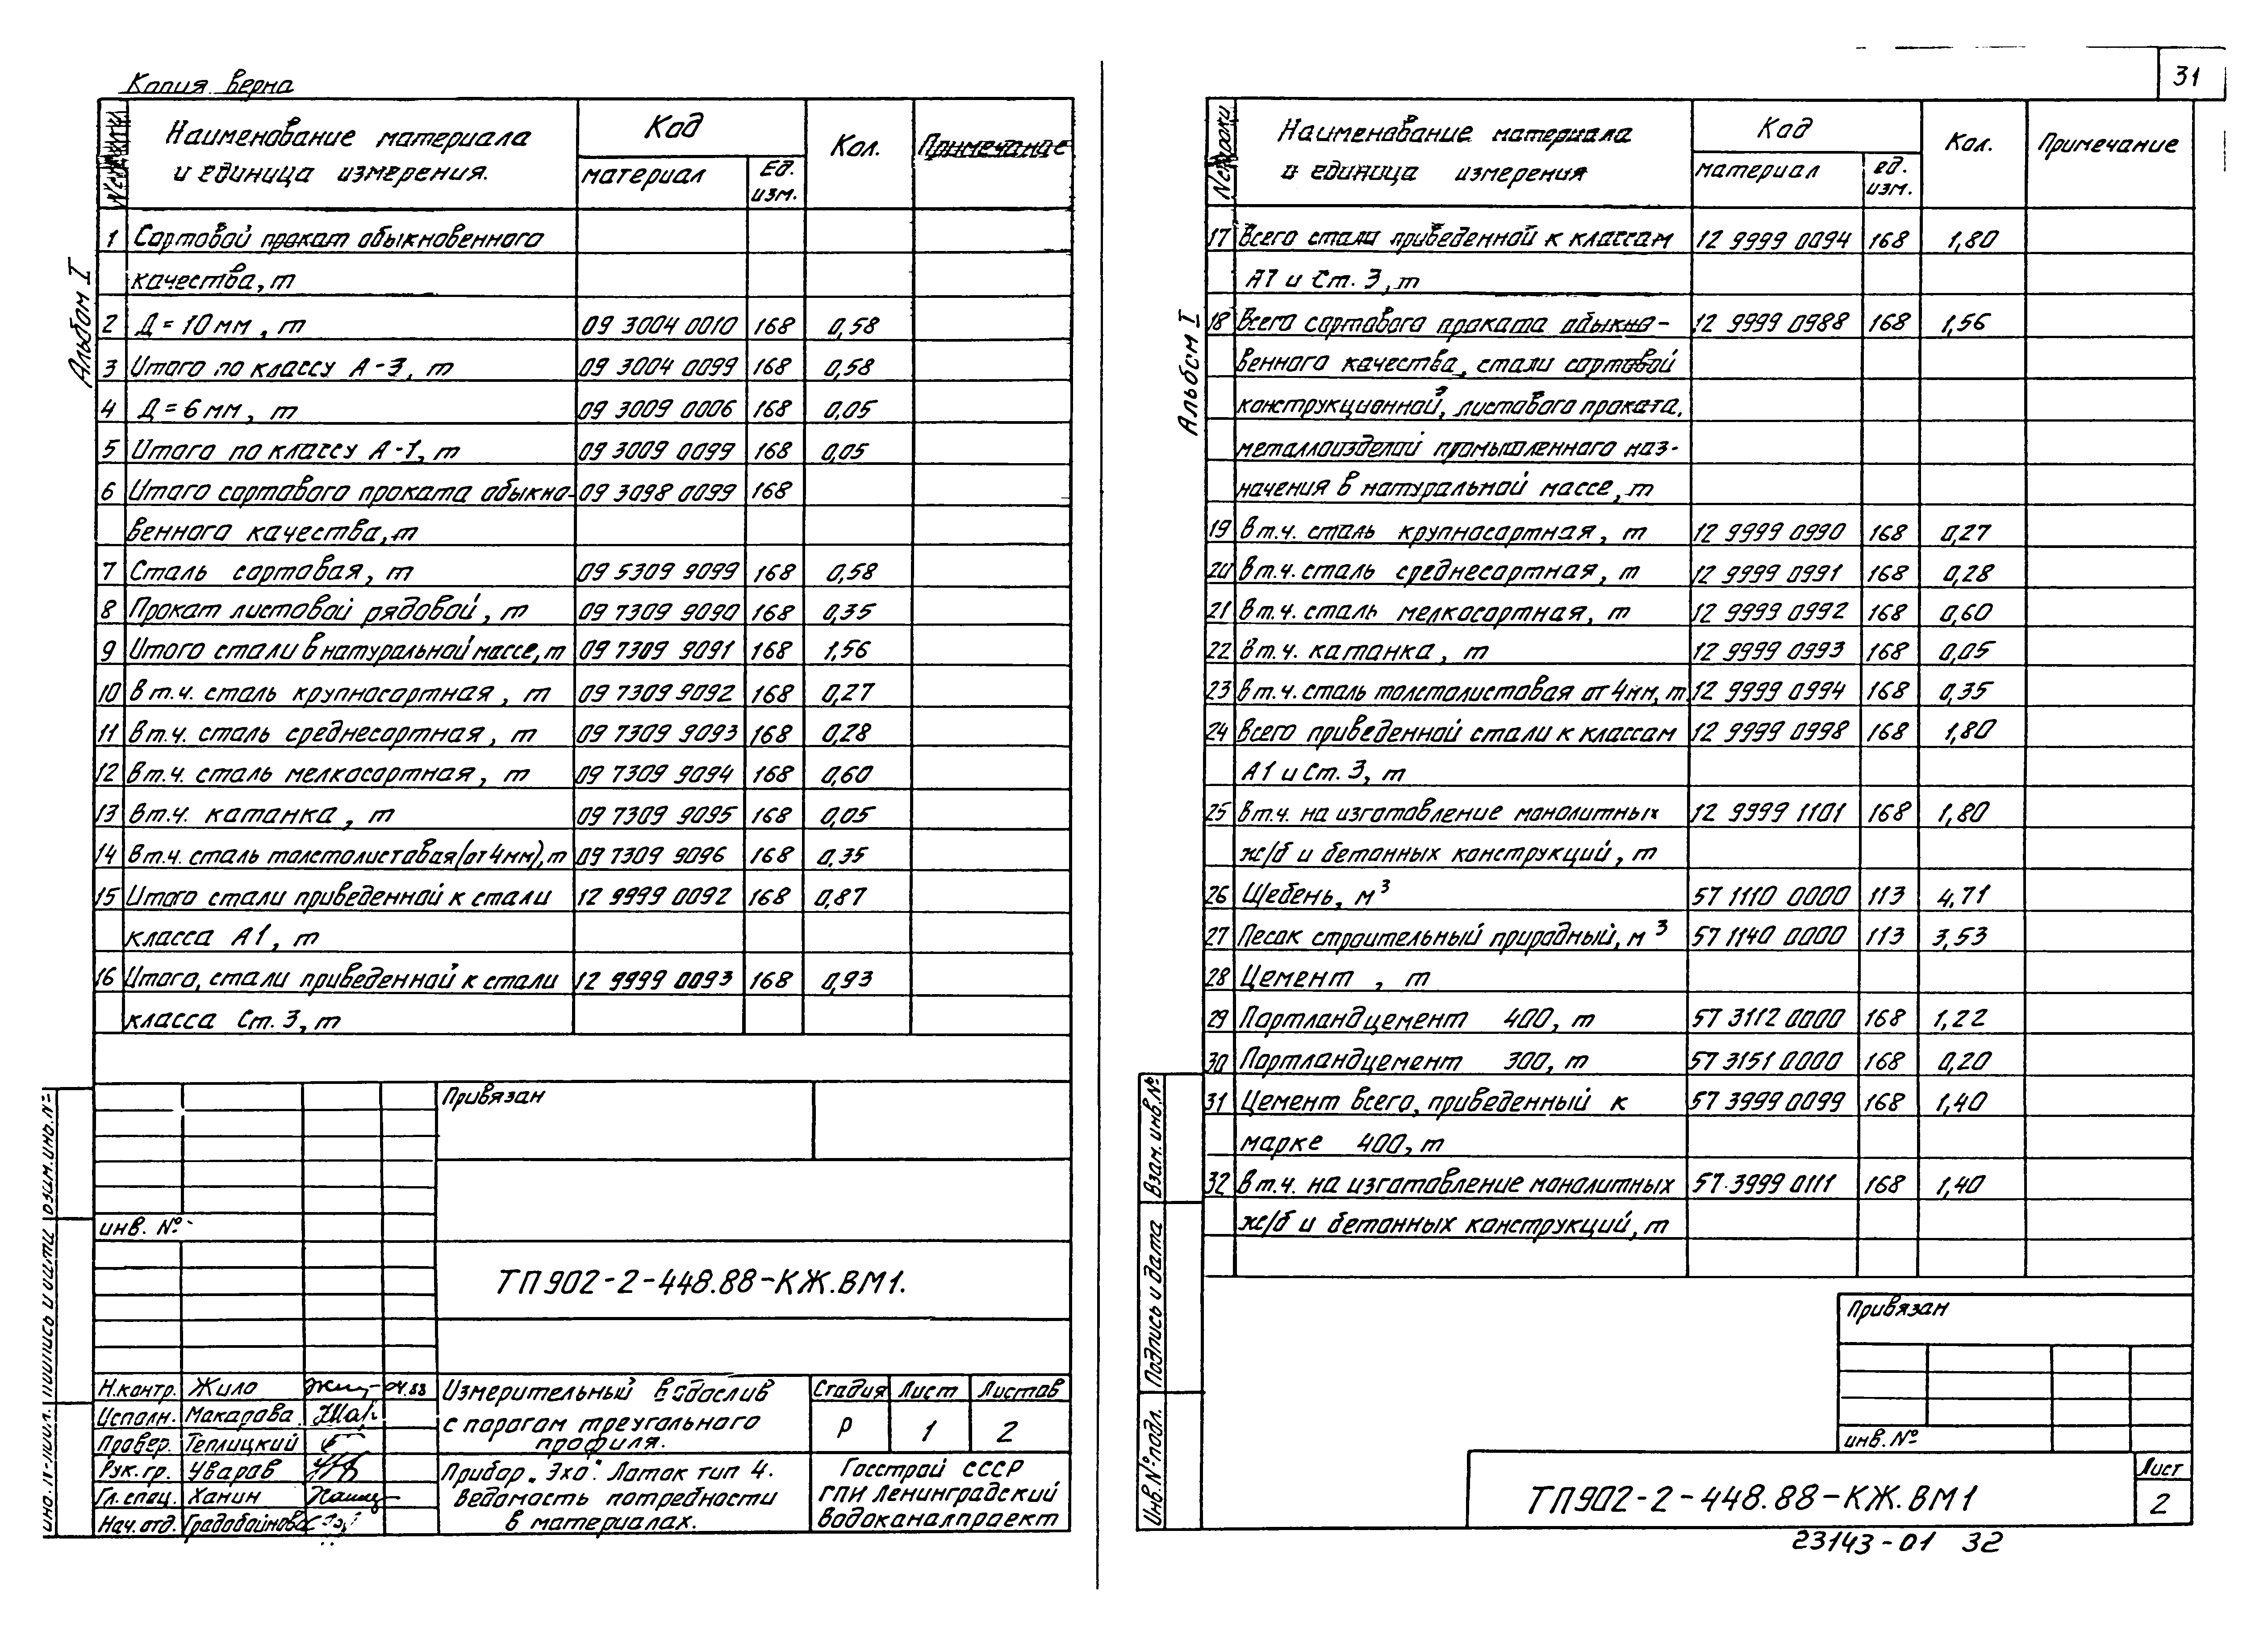 Копия верна
Альбом I
Наименование материала и единица измерения. Код Кол. Примечание
материал Ед. изм.
1 Сортовой прокат обыкновенного
качества, т
2 Д = 10 мм, т 09 3004 0010 168 0,58
3 Итого по классу А-3, т 09 3004 0099 168 0,58
4 Д = 6 мм, т 09 3009 0006 168 0,05
5 Итого по классу А-1, т 09 3009 0099 168 0,05
6 Итого сортового проката обыкно- 09 3098 0099 168
венного качества, т
7 Сталь сортовая, т 09 5309 9099 168 0,58
8 Прокат листовой рядовой, т 09 7309 9090 168 0,35
9 Итого стали в натуральной массе, т 09 7309 9091 168 1,56
10 в т.ч. сталь крупносортная, т 09 7309 9092 168 0,27
11 в т.ч. сталь среднесортная, т 09 7309 9093 168 0,28
12 в т.ч. сталь мелкосортная, т 09 7309 9094 168 0,60
13 в т.ч. катанка, т 09 7309 9095 168 0,05
14 в т.ч. сталь толстолистовая (от 4 мм), т 09 7309 9096 168 0,35
15 Итого стали приведенной к стали 12 9999 0092 168 0,87
класса А1, т
16 Итого, стали приведенной к стали 12 9999 0093 168 0,93
класса Ст. 3, т
Привязан
инв. №
ТП 902-2-448.88-КЖ.ВМ1.
Н.контр. Жило 04.88
Исполн. Макарова
Провер. Теплицкий
Рук. гр. Уваров
Гл. спец. Ханин
Нач. отд. Градобойнова
Измерительный водослив
с порогом треугольного
профиля.
Прибор „Эхо". Лоток тип 4.
Ведомость потребности
в материалах.
Стадия Лист Листов
Р 1 2
Госстрой СССР
ГПИ Ленинградский
Водоканалпроект
инв. № подл. Подпись и дата Взам. инв. №
31
Альбом I
№ строки Наименование материала и единица измерения Код Кол. Примечание
материал ед. изм.
17 Всего стали приведенной к классам 12 9999 0094 168 1,80
А1 и Ст. 3, т
18 Всего сортового проката обыкно- 12 9999 0988 168 1,56
венного качества, стали сортовой
конструкционной, листового проката,
металлоизделий промышленного наз-
начения в натуральной массе, т
19 в т.ч. сталь крупносортная, т 12 9999 0990 168 0,27
20 в т.ч. сталь среднесортная, т 12 9999 0991 168 0,28
21 в т.ч. сталь мелкосортная, т 12 9999 0992 168 0,60
22 в т.ч. катанка, т 12 9999 0993 168 0,05
23 в т.ч. сталь толстолистовая от 4 мм, т 12 9999 0994 168 0,35
24 Всего приведенной стали к классам 12 9999 0998 168 1,80
А1 и Ст. 3, т
25 в т.ч. на изготовление монолитных 12 9999 1101 168 1,80
ж/б и бетонных конструкций, т
26 Щебень, м³ 57 1110 0000 113 4,71
27 Песок строительный природный, м³ 57 1140 0000 113 3,53
28 Цемент, т
29 Портландцемент 400, т 57 3112 0000 168 1,22
30 Портландцемент 300, т 57 3151 0000 168 0,20
31 Цемент всего, приведенный к 57 3999 0099 168 1,40
марке 400, т
32 в т.ч. на изготовление монолитных 57.3999 0111 168 1,40
ж/б и бетонных конструкций, т
Привязан
инв. №
Инв. № подл. Подпись и дата Взам. инв. №
ТП 902-2-448.88-КЖ.ВМ1
Лист
2
23143-01 32